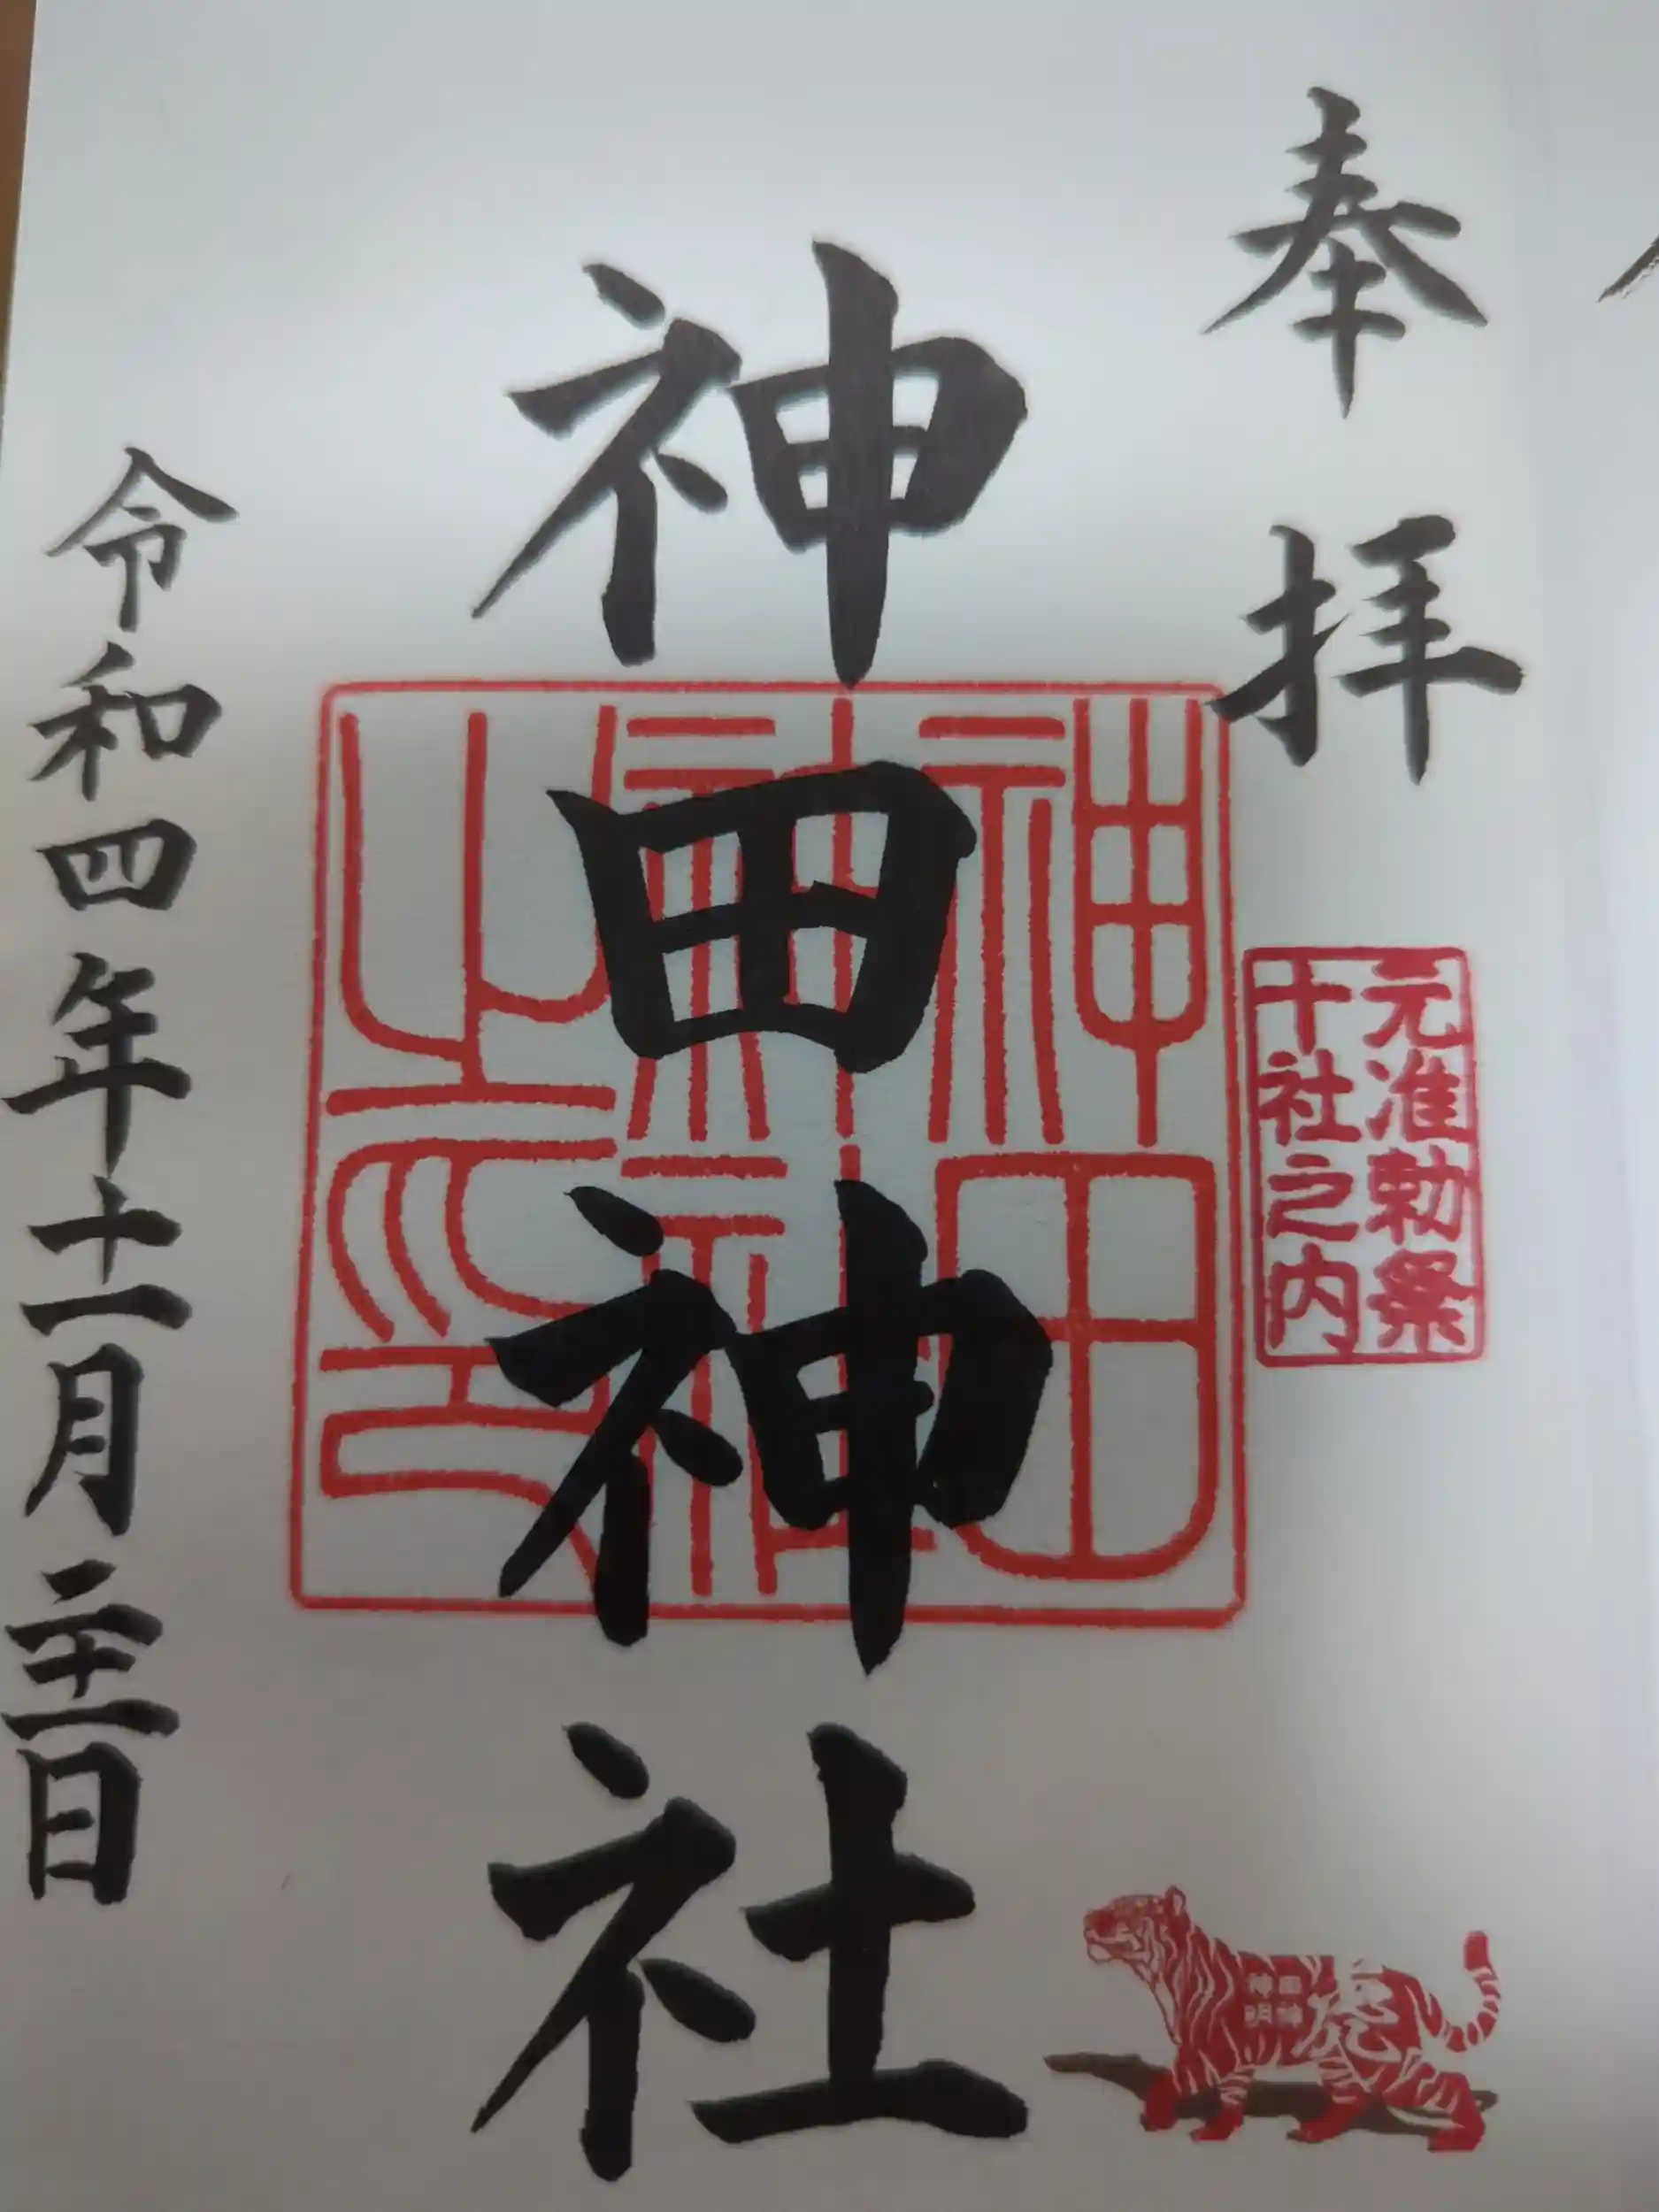 奉拝
元准勅祭
十社之内
神田神社
神田
神社
之印
令和四年 月 日
虎